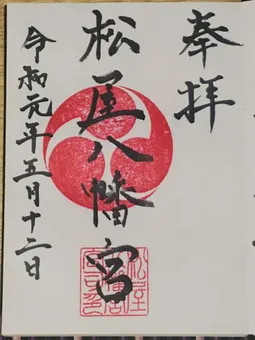 奉拝
松屋八幡宮
令和元年五月十二日